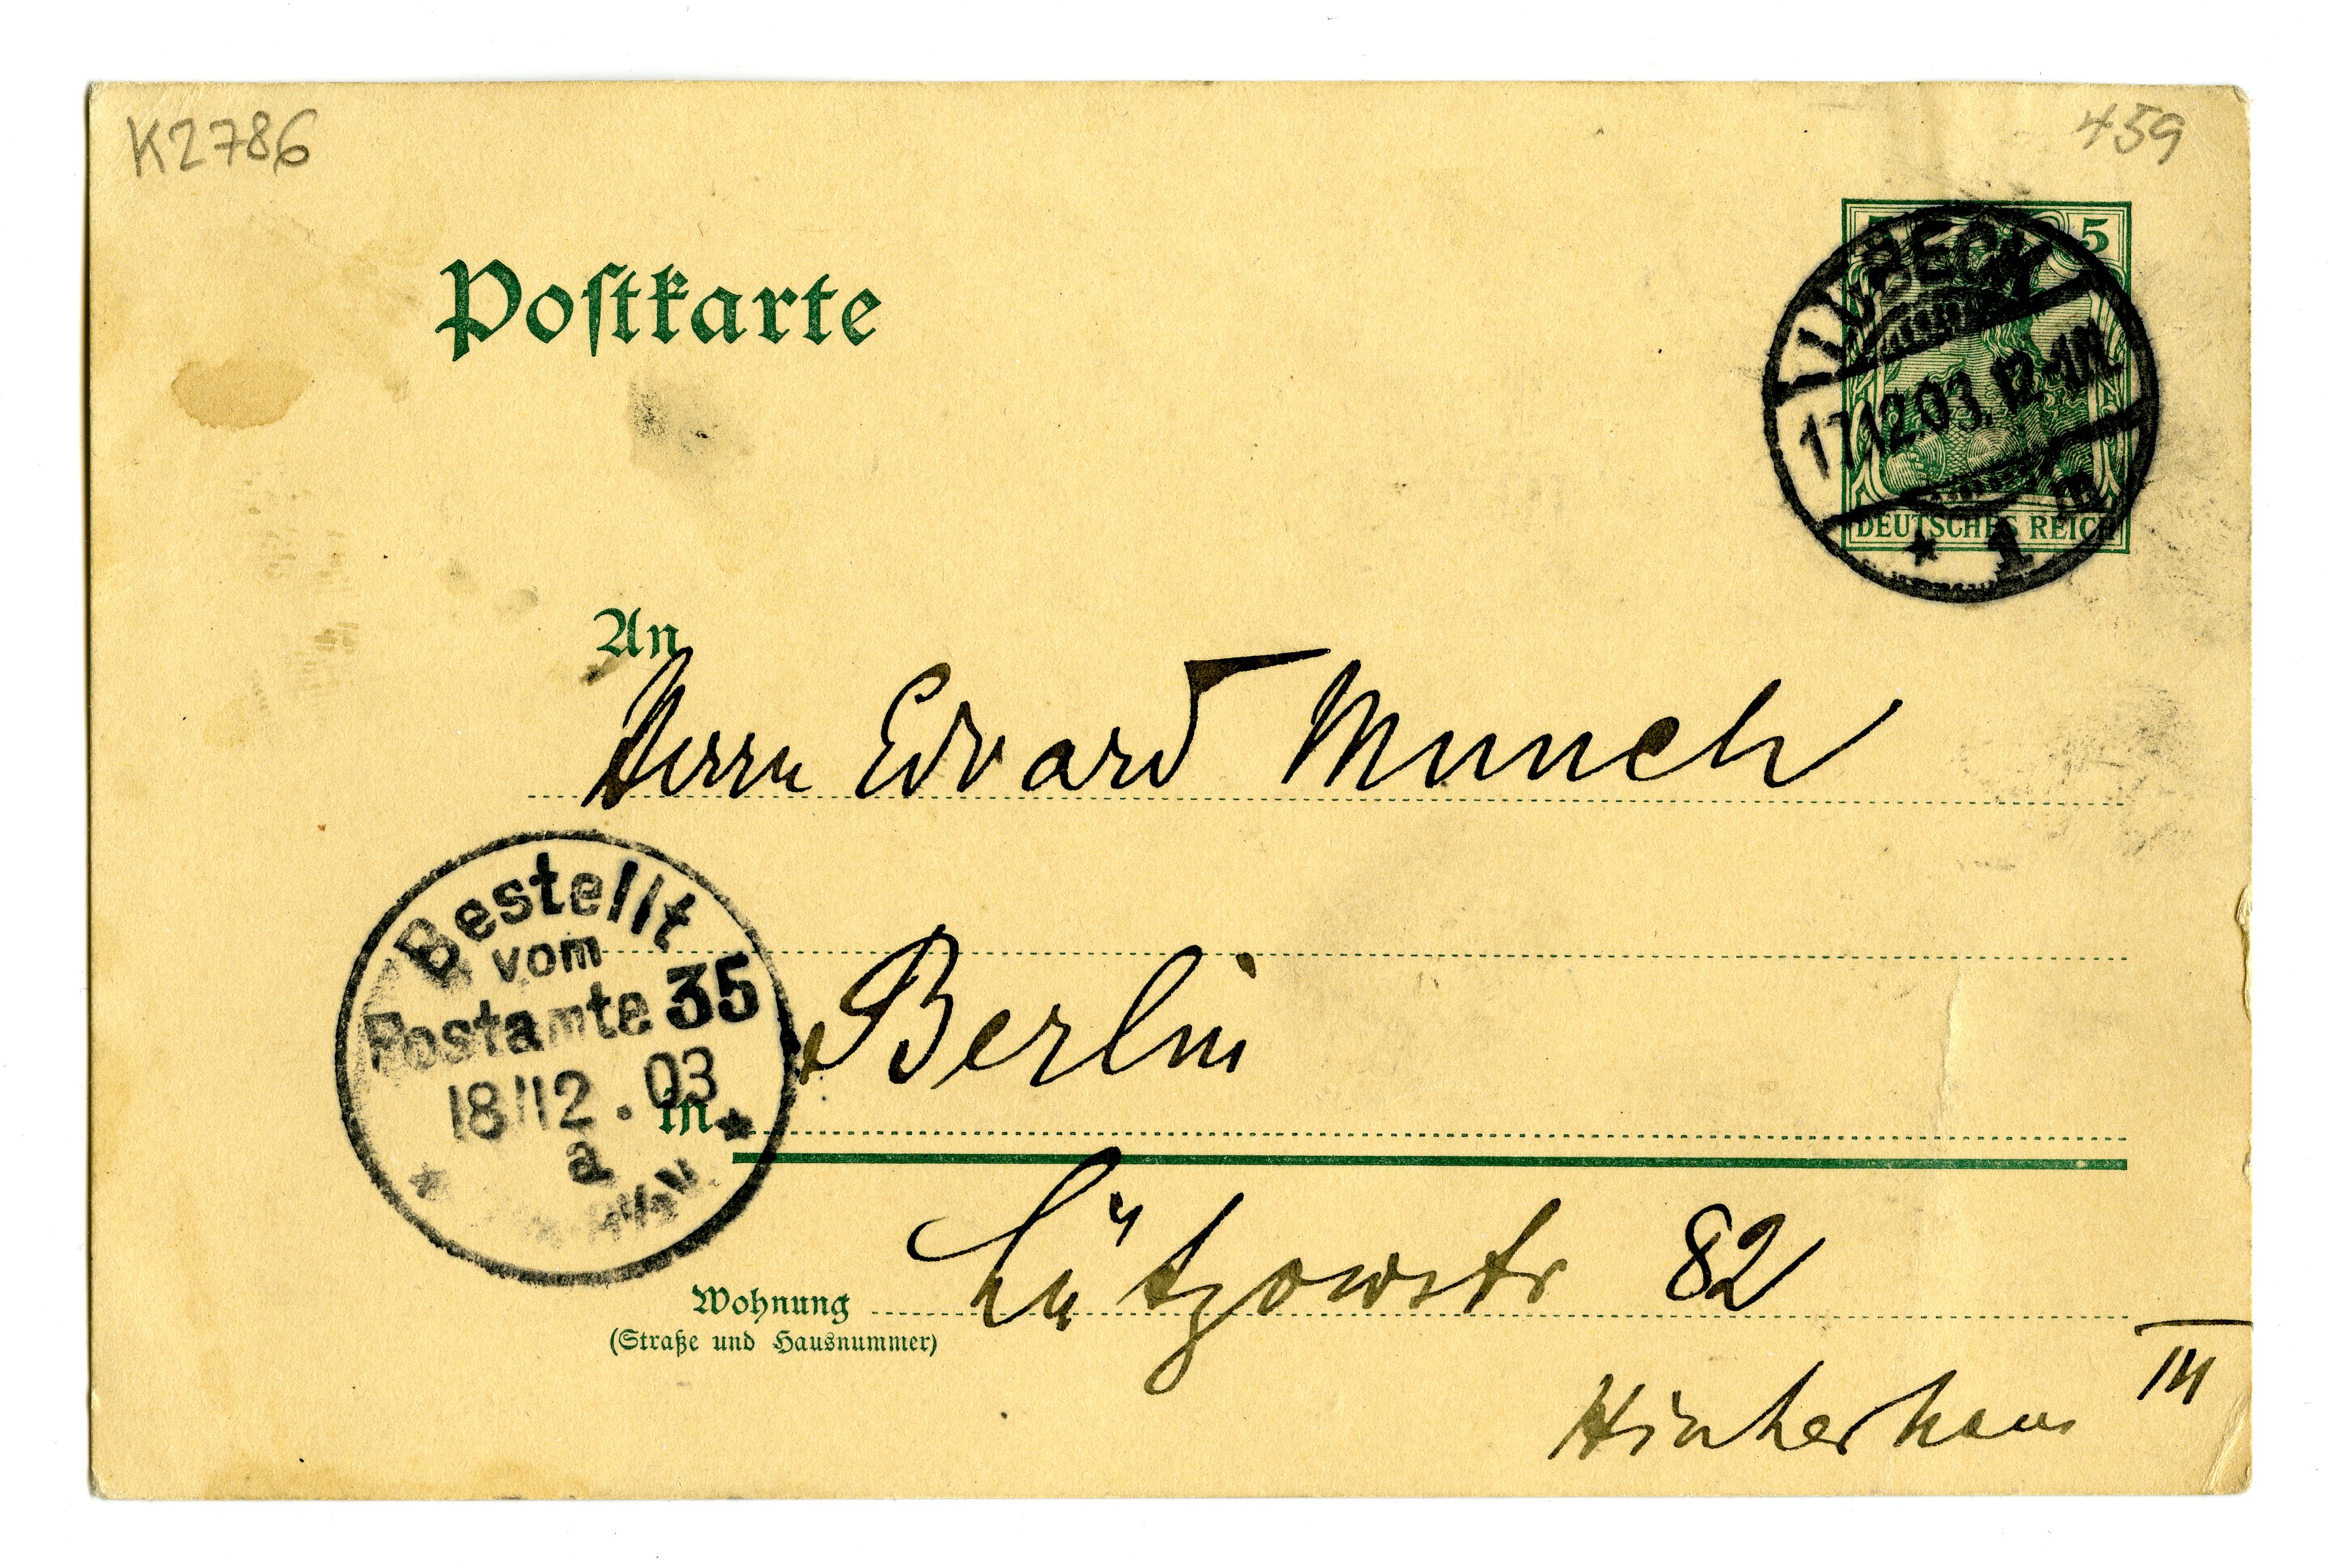 K2786
459
Postkarte
5
LÜBECK
17.12.03. 12-1N.
DEUTSCHES REICH
* 1
An
Herrn Edvard Munch
Bestellt
vom
Postamte 35
18/12.03
a
Berlin
in
Lützowstr 82
Wohnung
(Straße und Hausnummer)
III
Hinterhaus